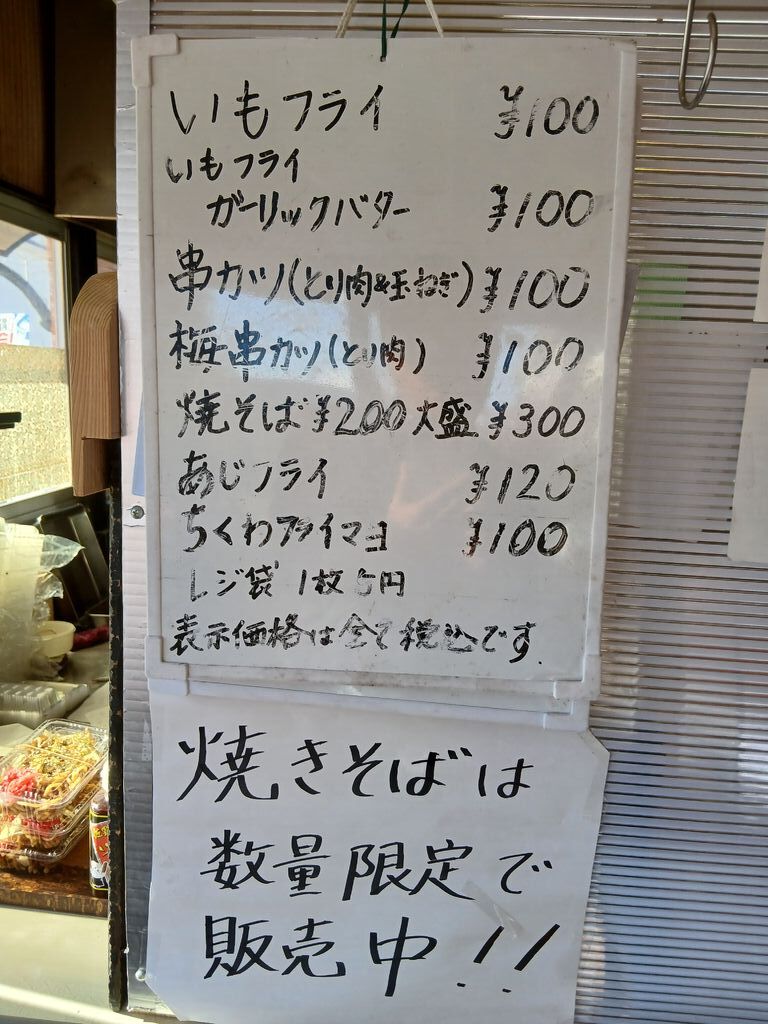 いもフライ ¥100
いもフライ
ガーリックバター ¥100
串カツ(とり肉&玉ねぎ) ¥100
梅串カツ(とり肉) ¥100
焼そば ¥200 大盛 ¥300
あじフライ ¥120
ちくわフライマヨ ¥100
レジ袋 1枚5円
表示価格は全て税込です.
焼きそばは
数量限定で
販売中!!